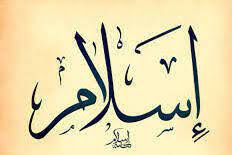 إِسَلام